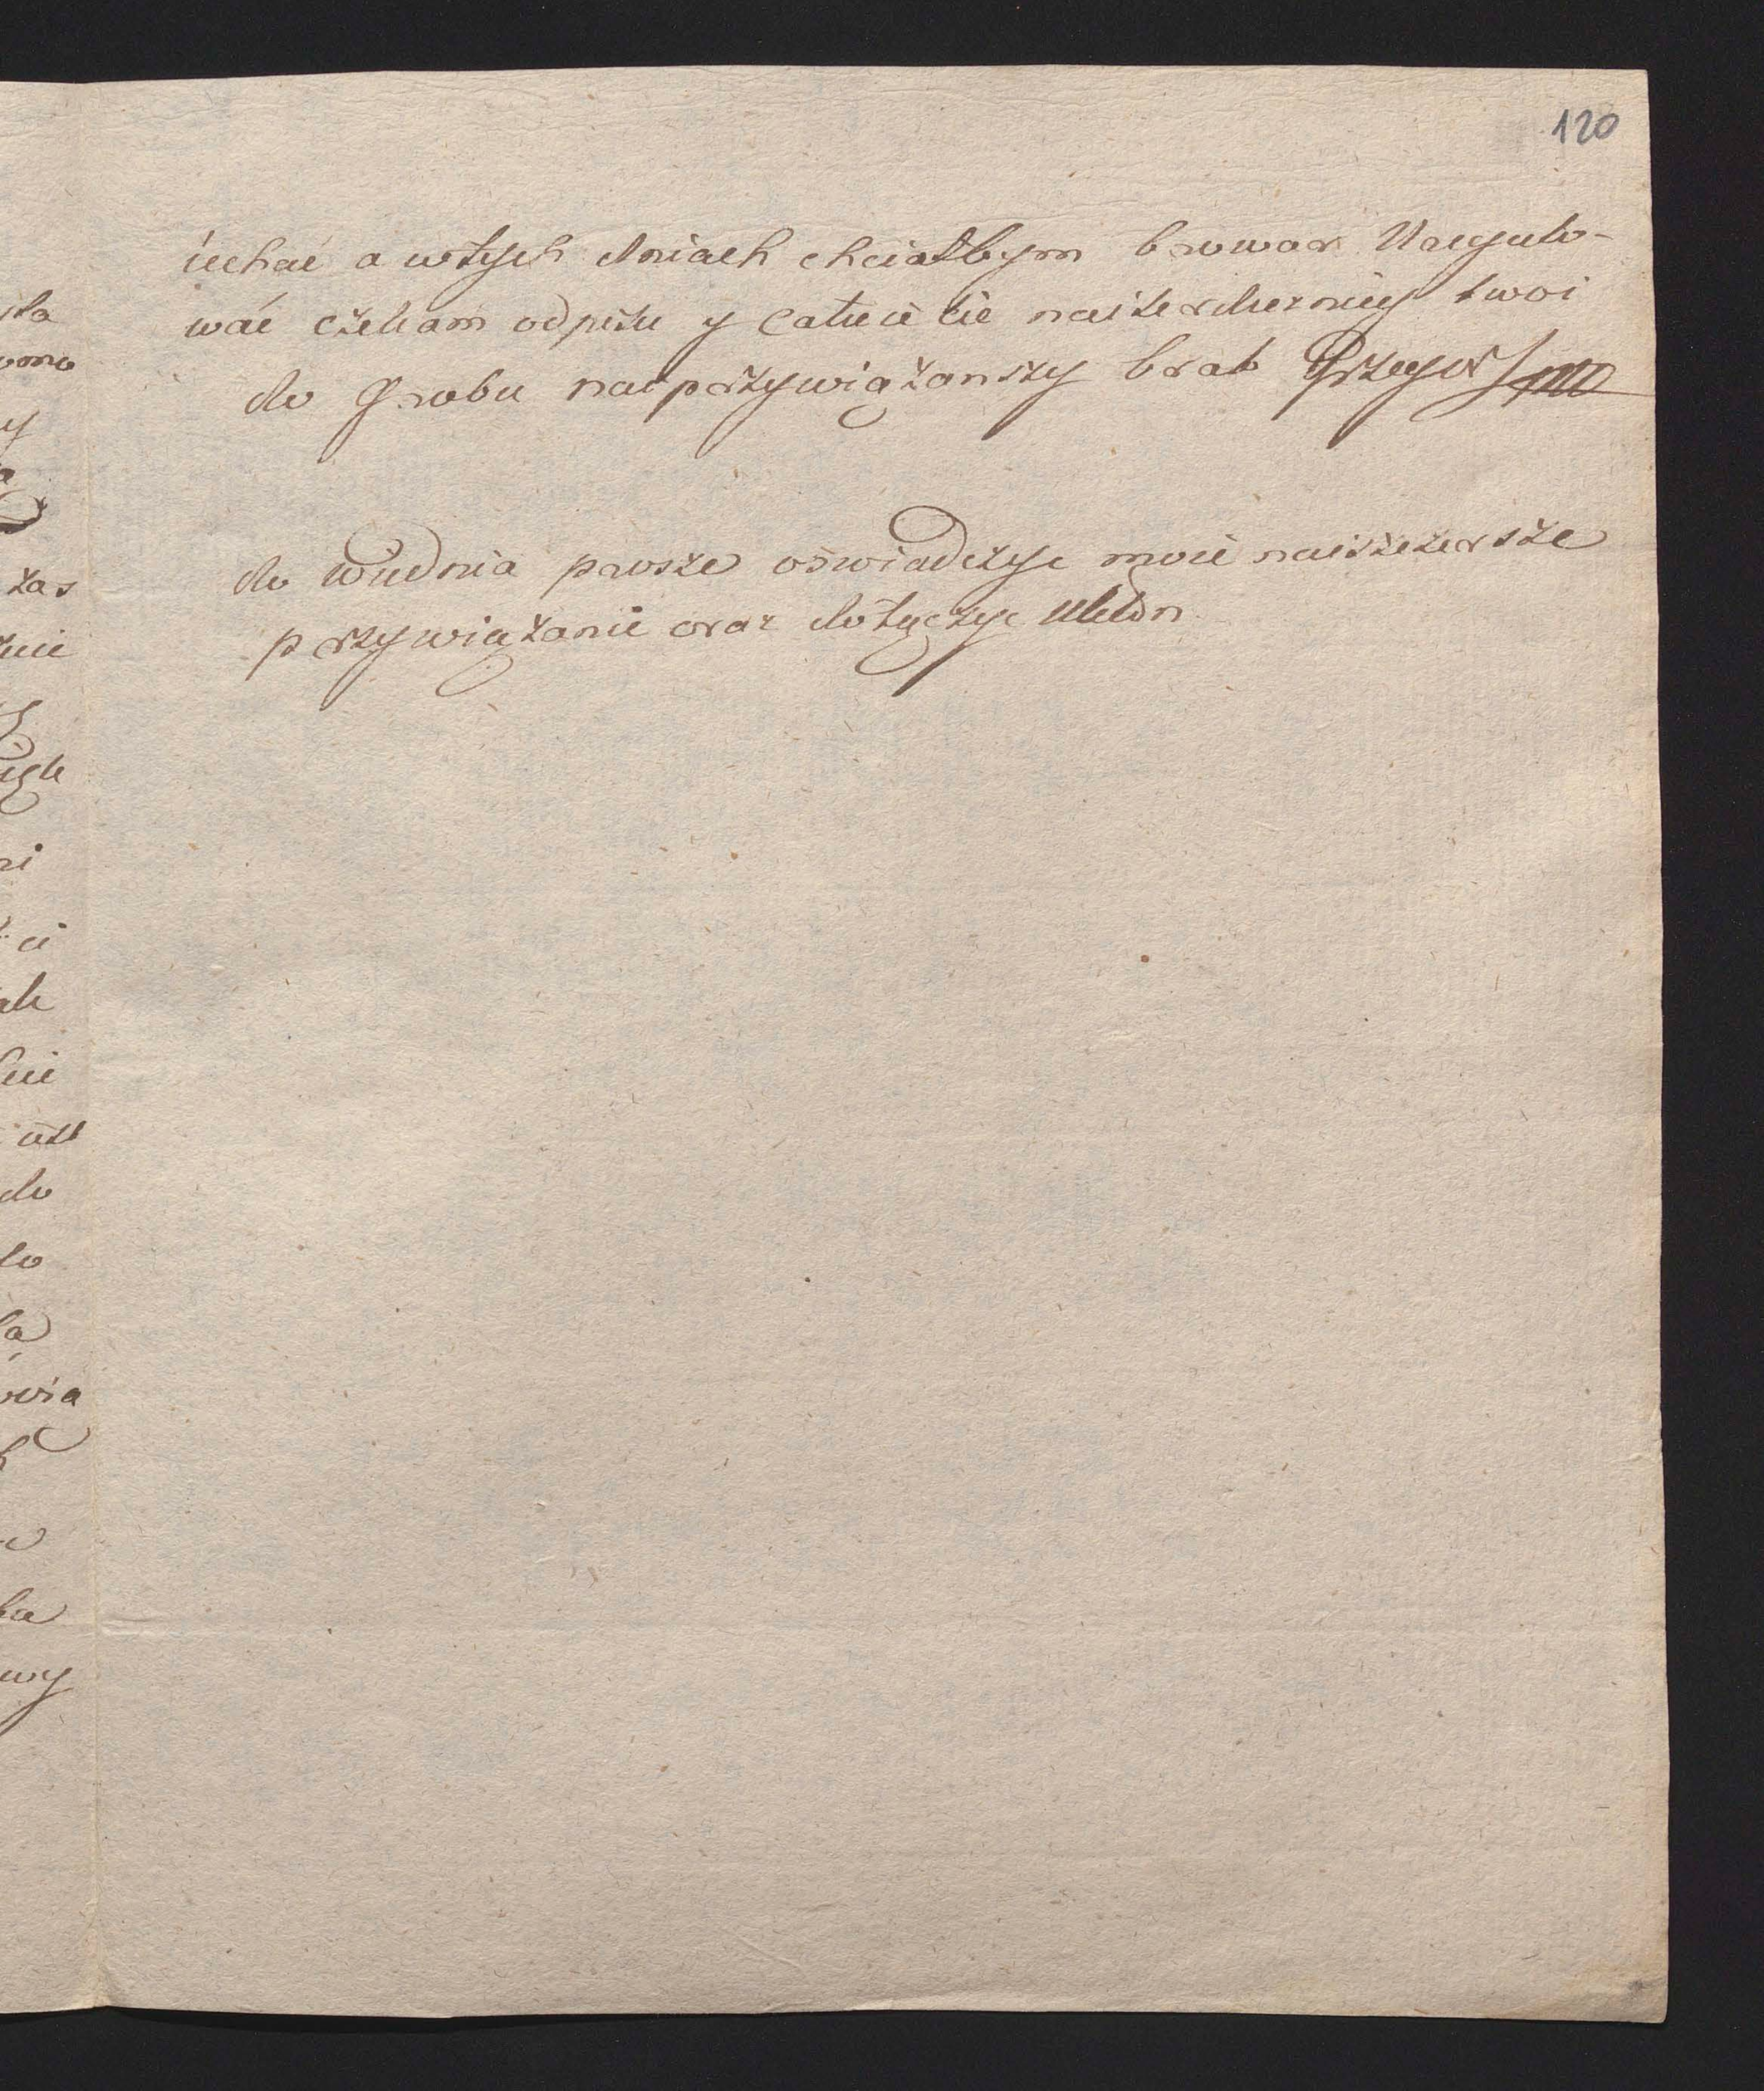 120
iechać a wtych dniach chciałbym browar Uregulo-
wać czekam odpisu y Całuie cie naiserdeczniey twoi
do Grobu naiprzywiązanszy brat Grzegorz
do Wiednia prosze oświadczyc moie naiszczersze
przywiązanie oraz dołączyc